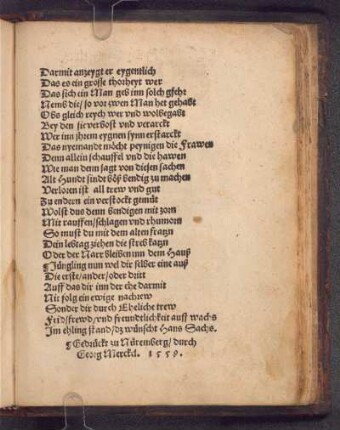 Darmit anzeygt er eygentlich
Das es ein grosse thorheyt wer
Das sich ein Man geb inn solch gfehr
Nemb die / so vor ewen Man het gehabt
Obs gleich reych wer vnd wolbegabt
Bey den sie verbost vnd verarckt
Wer inn jhrem eygnen synn erstarckt
Das nyemandt möcht peynigen die Frawen
Denn allein schauffel vnd die hawen
Wie man denn sagt von diesen sachen
Alt Hundt sindt böß bendig zu machen
Verloren ist all trew vnd gut
Zu endern ein verstockt gemüt
Wolst dus denn bendigen mit zorn
Mit rauffen / schlagen vnd rhumorn
So must du mit dem alten fratzn
Dein lebtag ziehen die streb katzn
Oder der Narr bleiben inn dem Hauß
¶ Jüngling nun wel dir selber eine auß
Die erst / ander / oder dritt
Auff das dir inn der ehe darmit
Nit folg ein ewige nachrew
Sonder dir durch Eheliche trew
Frid / frewd / vnd freundtlichkeit auff wachs
Im ehling stand / dz wünscht Hans Sachs.
¶ Gedrückt zu Nüremberg / durch
Georg Merckel. 1558.